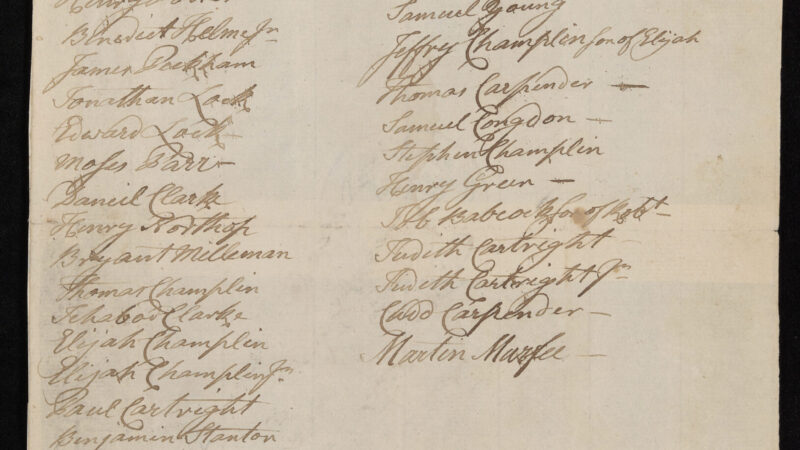 Benedict Helme Jr
James Peckham
Jonathan Lock
Edward Lock
Moses Barr
Daneil Clark
Henry Northop
Bryant Milleman
Thomas Champlin
Ichabod Clarke
Elijah Champlin
Elijah Champlin Jr
Paul Cartright
Benjamin Stanton
Samuel Young
Jeffry Champlin son of Elijah
Thomas Carpender —
Samuel Congdon —
Stephen Champlin
Henry Green —
Job Babcock son of Robt —
Judith Cartright —
Judith Cartright Jr
Cudd Carpender —
Martin Murfee —